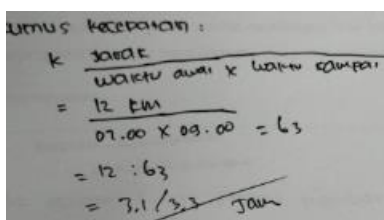 rumus kecepatan :
k jarak
waktu awal x waktu sampai
= 12 km
07.00 x 09.00 = 63
= 12 : 63
= 3.1/3.3 Jam